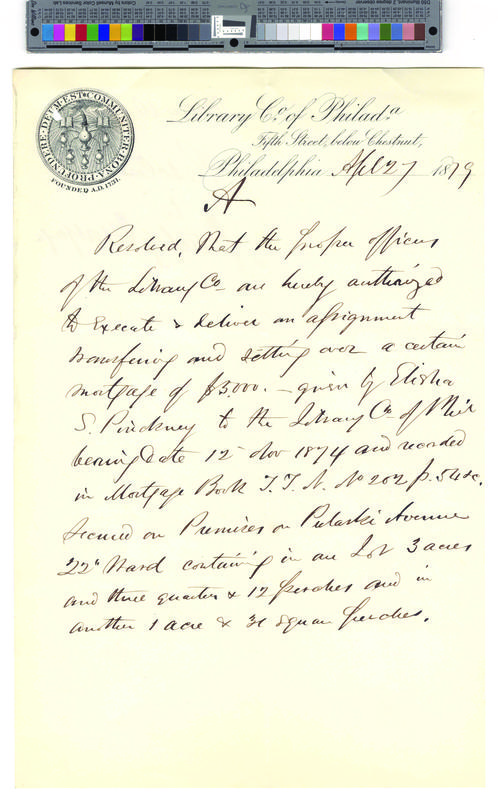 COMMUNITER BONA PROFUNDERE DEUM EST
FOUNDED A.D. 1731.
Library Co. of Philada.
Fifth Street, below Chestnut,
Philadelphia Apl 27 1879
A
Resolved, That the proper officers
of the Library Co are hereby authorized
to Execute & deliver an assignment
transferring and setting over a certain
mortgage of $3.000. – given by Elisha
S. Pinckney to the Library Co of Phil
bearing Date 12 Nov 1874 and recorded
in Mortgage Book No 202 p. 54 &c.
secured on Premises on Pulaski Avenue
22d Ward containing in one Lot 3 acres
and three quarters & 12 perches and in
another 1 acre & square perches.